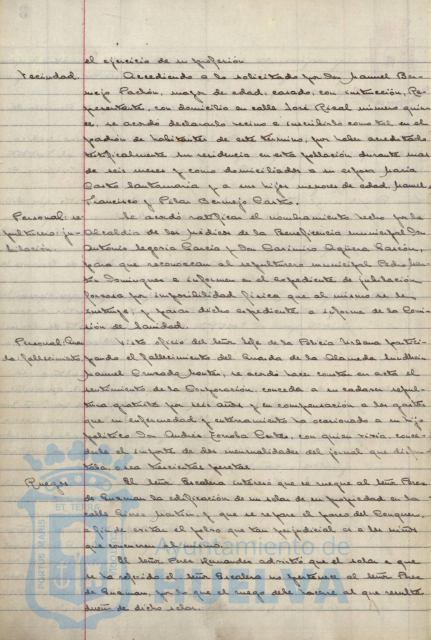 el ejercicio de su profesión
Vecindad. Accediendo a lo solicitado por Don Manuel Ber-
mejo Pachón, mayor de edad, casado, con instrucción, Re-
presentante, con domicilio en calle José Rizal número quin-
ce, se acordó declararlo vecino e inscribirlo como tal en el
padrón de habitantes de este término, por haber acreditado
testificalmente su residencia en esta población durante más
de seis meses y como domiciliados a su esposa María
Castro Santamaría y a sus hijos menores de edad, Manuel,
Francisco y Pilar Bermejo Castro.
Personal: se- Se acordó ratificar el nombramiento hecho por la
pulturero: ju- Alcaldía de los médicos de la Beneficencia municipal Don
bilación. Antonio Segovia García y Don
para que reconozcan al sepulturero municipal Pedro
Domínguez e informen en el expediente de jubilación
forzosa por imposibilidad física que al mismo se le
instruye, y pasar dicho expediente a informe de la Comi-
sión de Sanidad.
Personal: Guar- Visto oficio del Señor Jefe de la Policía Urbana partici-
da: fallecimiento. pando el fallecimiento del Guarda de la Alameda Sundheim
Manuel Quesada Martín, se acordó hacer constar en acta el
sentimiento de la Corporación, conceder a su cadáver sepul-
tura gratuita por seis años y en compensación a los gastos
que su enfermedad y enterramiento ha ocasionado a su hijo
político Don Andrés con quien vivía, conce-
derle el importe de dos mensualidades del jornal que disfru-
taba, o sea trescientas pesetas.
Ruegos El Señor Escalera interesó que se ruegue al Señor Pérez
de Guzmán la edificación de un solar de su propiedad en la
calle y que se repare el paseo del Conquero,
a fin de evitar el polvo que tan perjudicial es a los niños
que concurren al mismo.
El Señor Pérez Hernández advirtió que el solar a que
se ha referido el Señor Escalera no pertenece al Señor Pérez
de Guzmán, por lo que el ruego debe hacerse al que resulte
dueño de dicho solar.
Ayuntamiento de
HUELVA